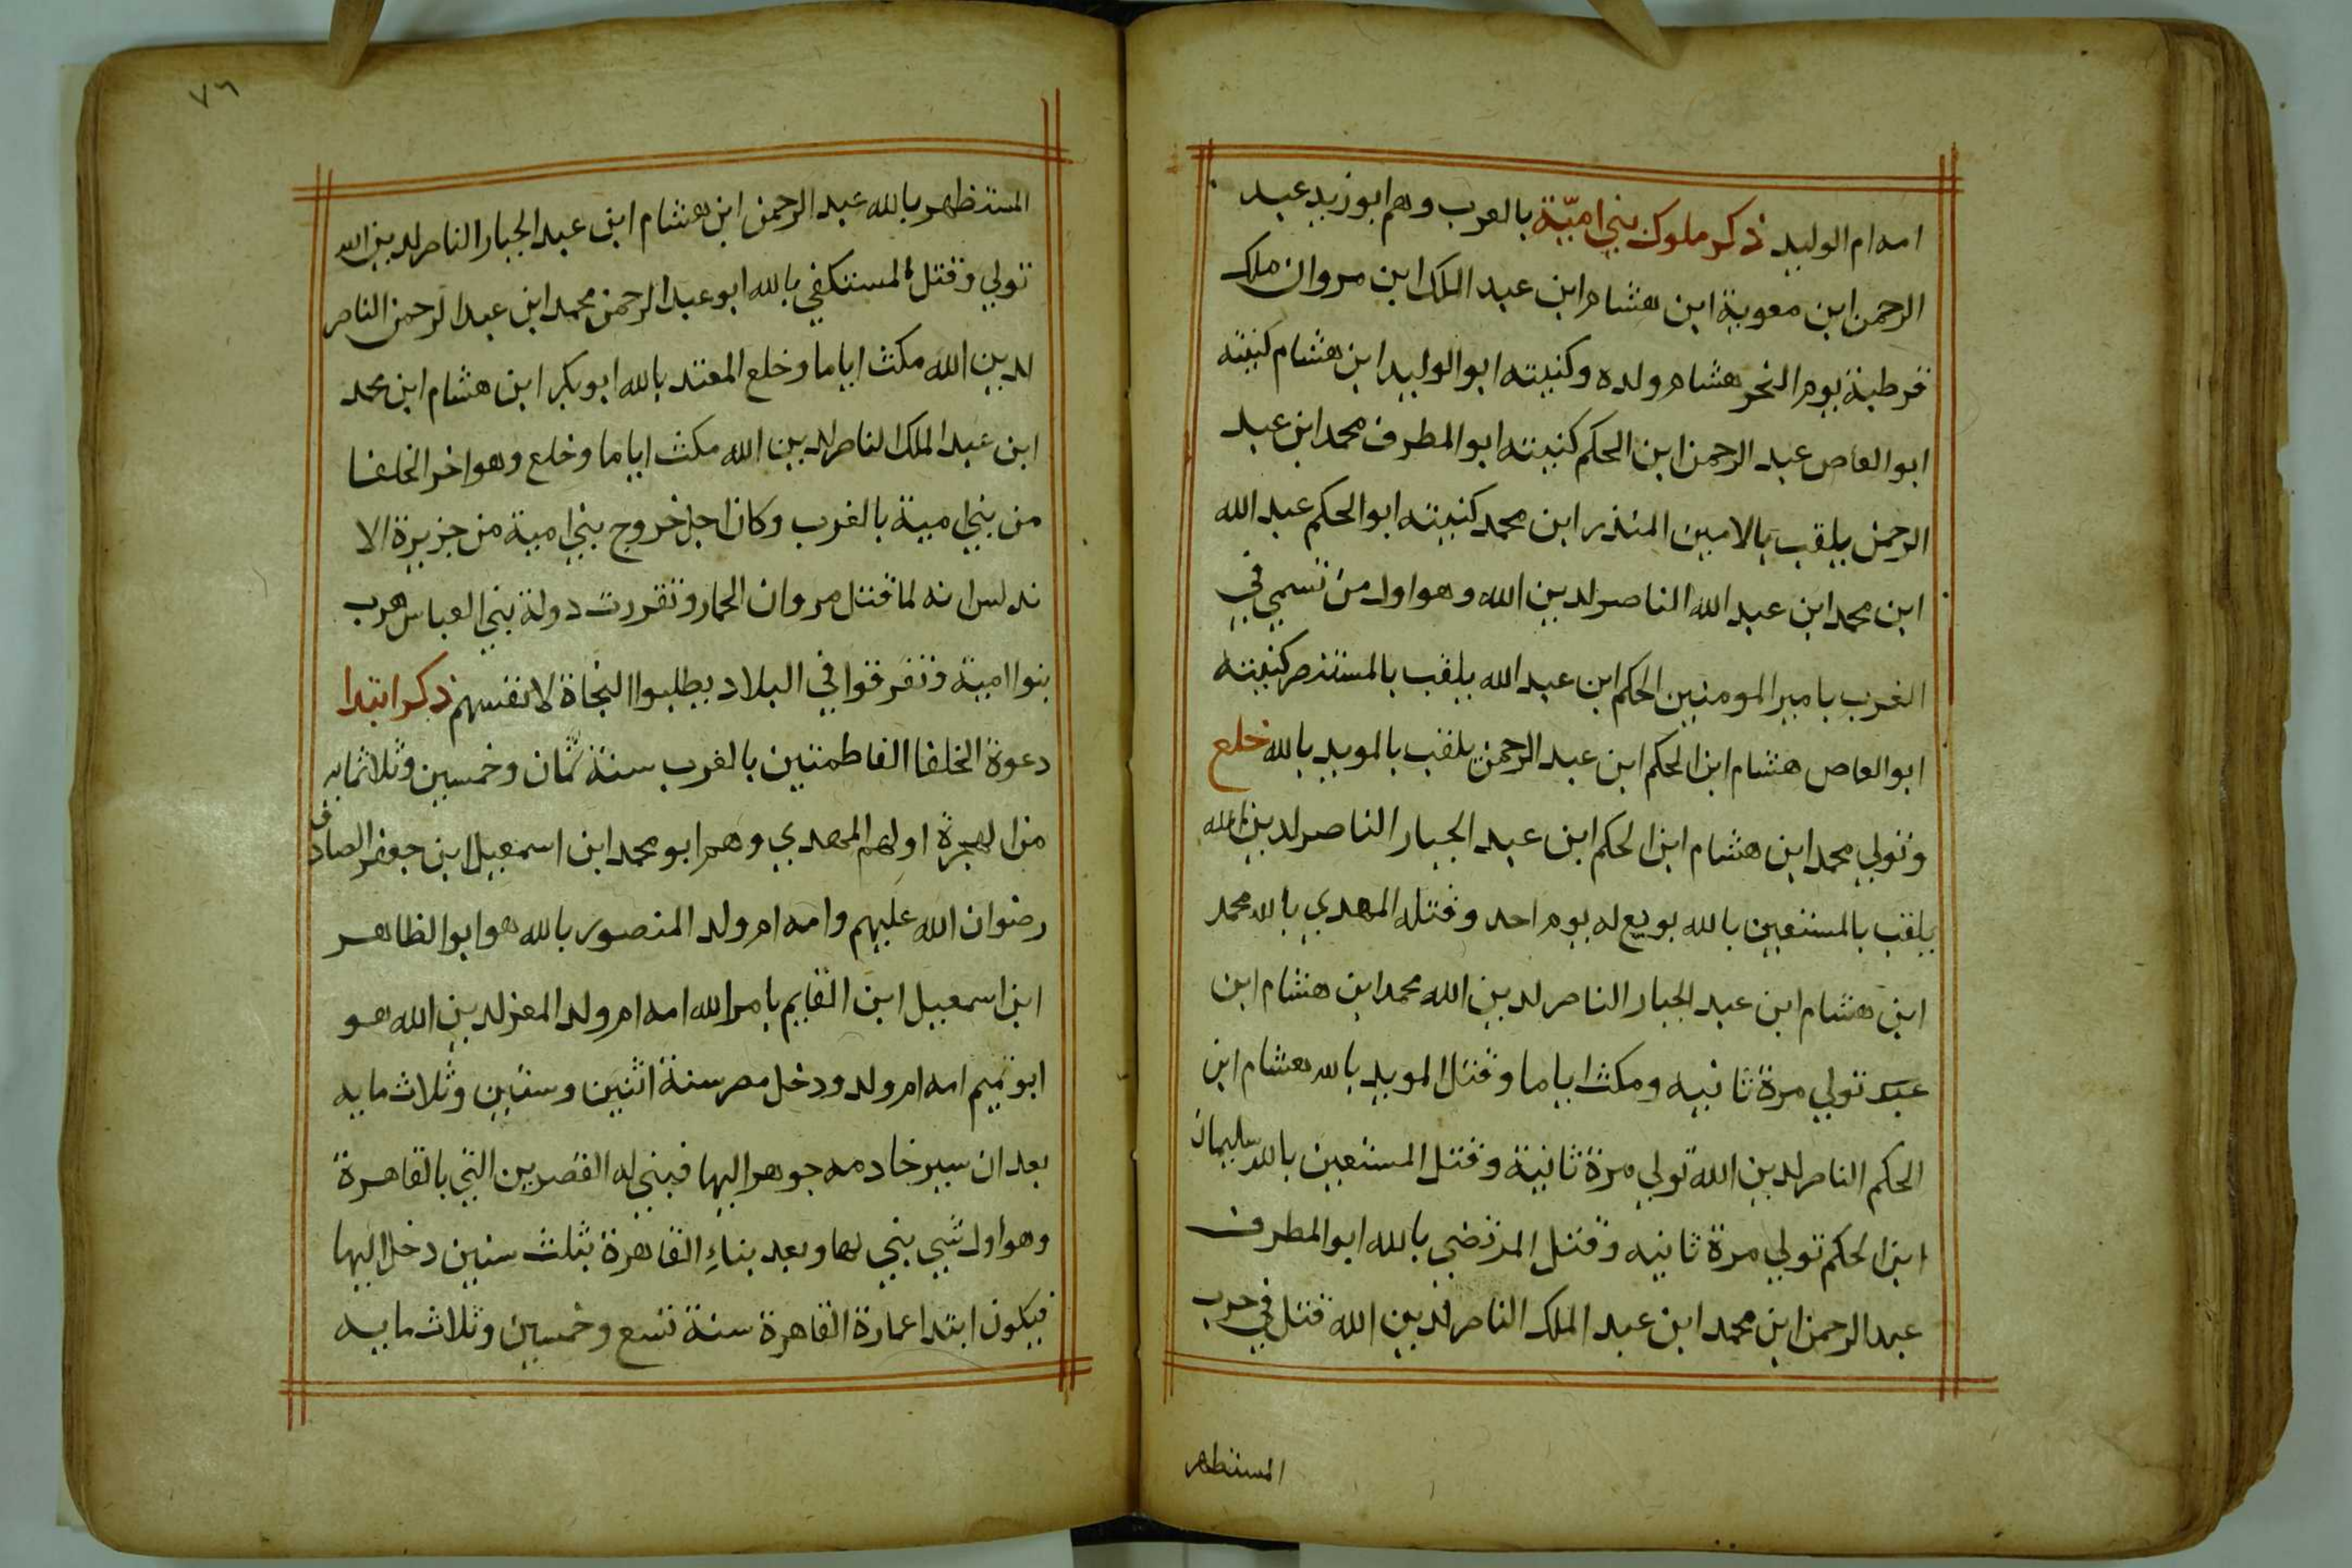 امه ام الوليد ذكر ملوك بني اميّة بالعرب وهم ابو زيد عبد
الرحمن ابن معوية ابن هشام ابن عبد الملك ابن مروان ملك
قرطبة يوم النحر هشام ولده وكنيته ابو الوليد ابن هشام كنيته
ابو العاص عبد الرحمن ابن الحكم كنيته ابو المطرف محمد ابن عبد
الرحمن يلقب بالامين المنذر ابن محمد كنيته ابو الحكم عبد الله
ابن محمد ابن عبد الله الناصر لدين الله وهو اول من تسمي في
الغرب بامير المومنين الحكم ابن عبد الله يلقب بالمستنصر كنيته
ابو العاص هشام ابن الحكم ابن عبد الرحمن يلقب بالمويد بالله خلع
وتولي محمد ابن هشام ابن الحكم ابن عبد الجبار الناصر لدين الله
يلقب بالمستعين بالله بويع له يوم احد وقتله المهدي بالله محمد
ابن هشام ابن عبد الجبار الناصر لدين الله محمد ابن هشام ابن
عبد تولي مرة ثانيه ومكث اياما وقتل المويد بالله هشام ابن
الحكم الناصر لدين الله تولي مرة ثانية وقتل المستعين بالله سليمان
ابن الحكم تولي مرة ثانيه وقتل المرتضي بالله ابو المطرف
عبد الرحمن ابن محمد ابن عبد الملك الناصر لدين الله قتل في حرب
المستظهر
٧٦
المستظهر بالله عبد الرحمن ابن هشام ابن عبد الجبار الناصر لدين الله
تولي وقتل المستكفي بالله ابو عبد الرحمن محمد ابن عبد الرحمن الناصر
لدين الله مكث اياما وخلع المعتد بالله ابو بكر ابن هشام ابن محمد
ابن عبد الملك الناصر لدين الله مكث اياما وخلع وهو اخر الخلفا
من بني امية بالغرب وكان اجل خروج بني امية من جزيرة الا
ندلس انه لما قتل مروان الحمار وتقررت دولة بني العباس هرب
بنوا امية وتفرقوا في البلاد يطلبوا النجاة لانفسهم ذكر ابتدا
دعوة الخلفا الفاطمتين بالغرب سنة ثمان وخمسين وثلاثمايه
من الهجرة اولهم المهدي وهو ابو محمد ابن اسمعيل ابن جعفر الصادق
رضوان الله عليهم وامه ام ولد المنصور بالله هو ابو الظاهر
ابن اسمعيل ابن القايم بامر الله امه ام ولد المعز لدين الله هو
ابو تميم امه ام ولد ودخل مصر سنة اثنين وستين وثلاث مايه
بعد ان سير خادمه جوهر اليها فبني له القصرين التي بالقاهرة
وهو اول شي بني لها وبعد بناءِ القاهرة بثلث سنين دخل اليها
فيكون ابتدا عمارة القاهرة سنة تسع وخمسين وثلاث مايه